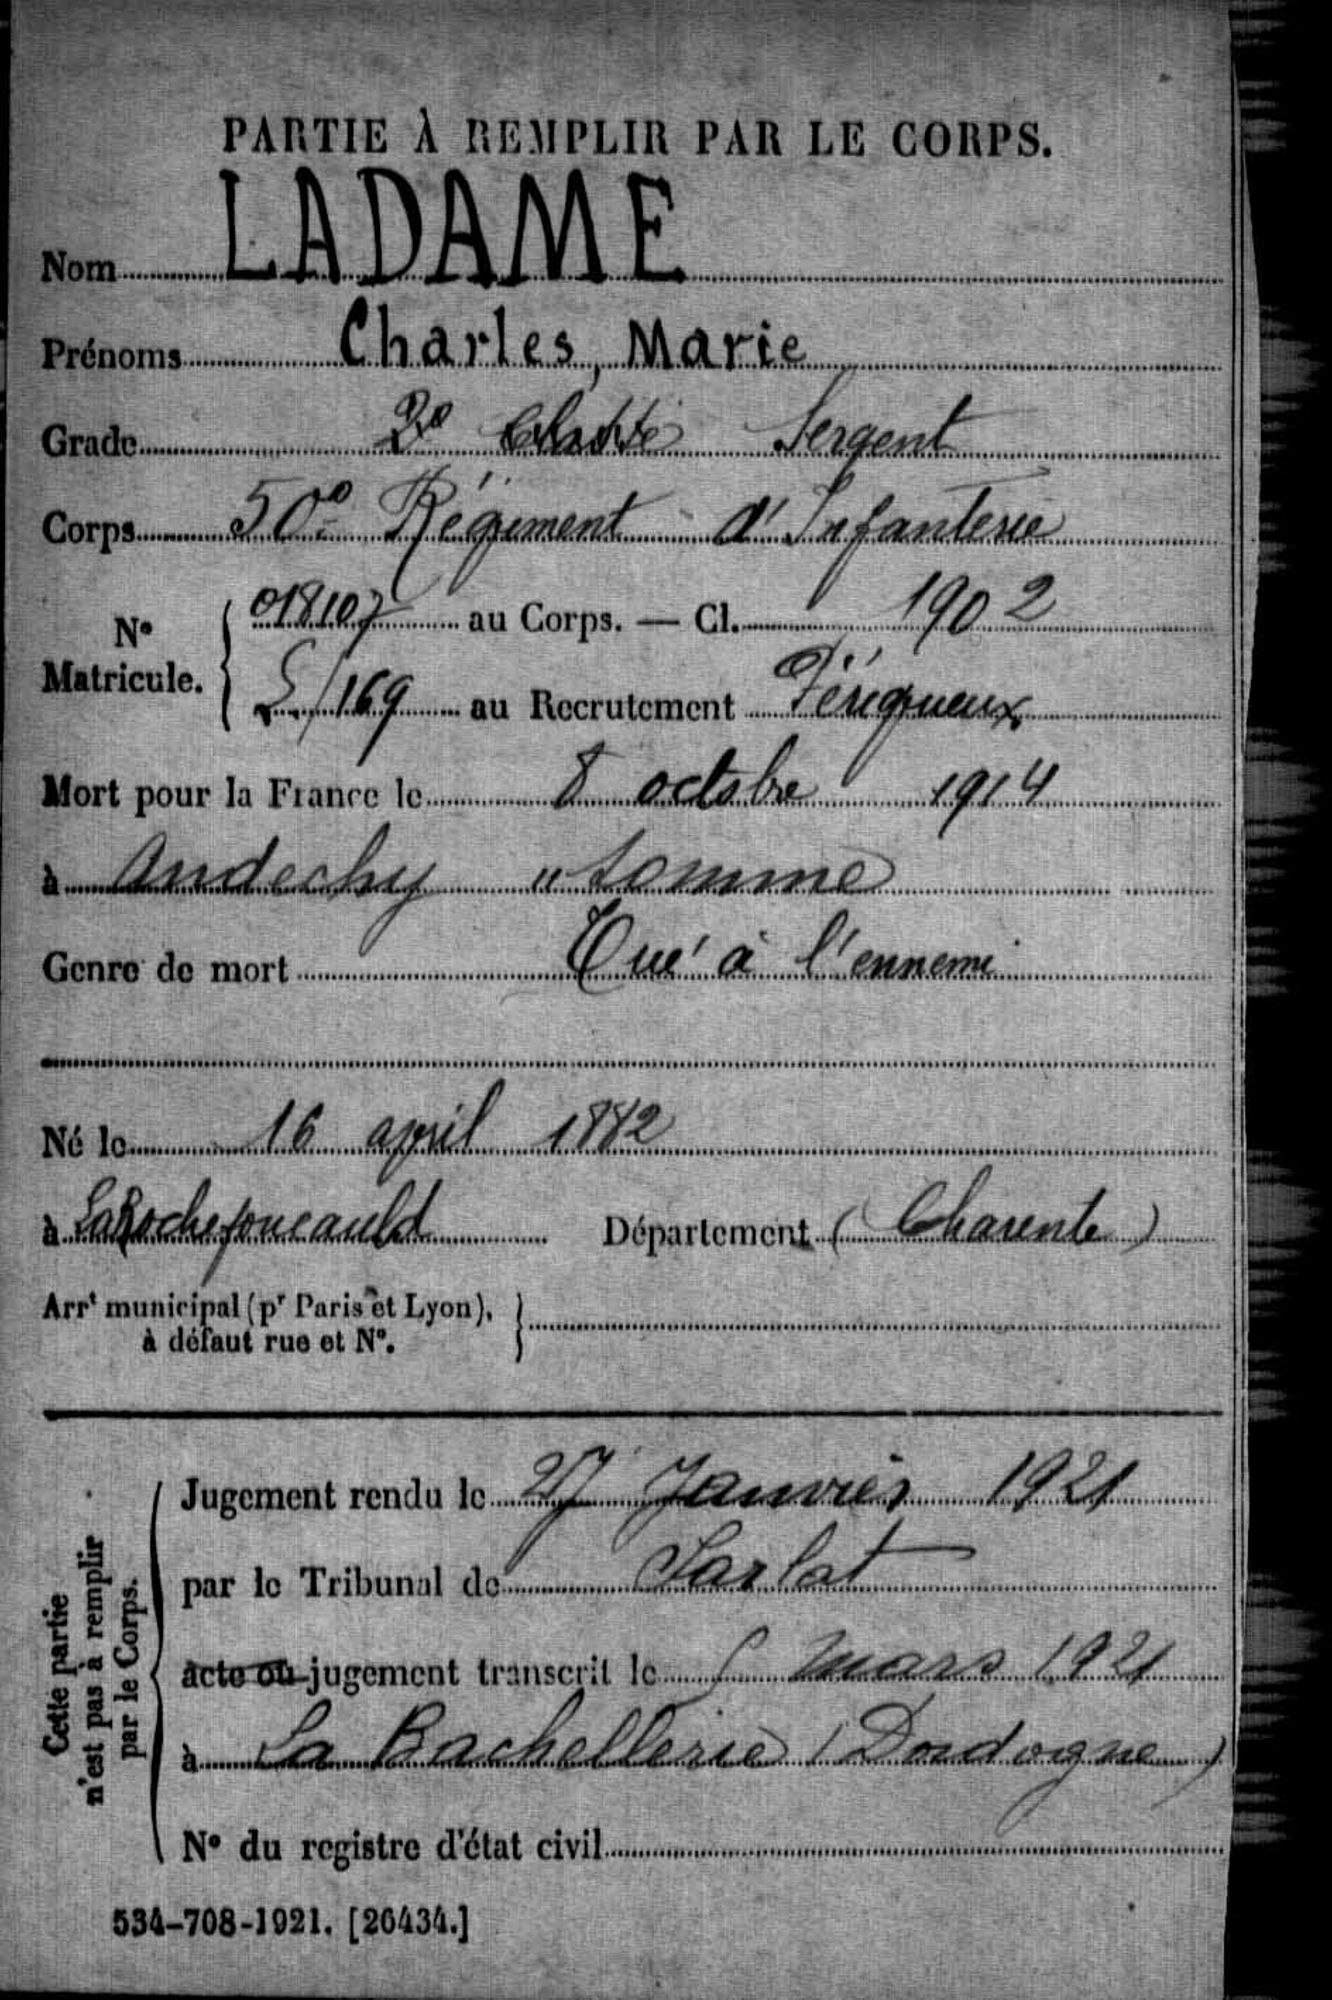 PARTIE À REMPLIR PAR LE CORPS.
Nom LADAME
Prénoms Charles, Marie
Grade 2e Classe Sergent
Corps 50e Régiment d'Infanterie
No Matricule. 018107 au Corps. — Cl. 1902
169 au Recrutement Périgueux
Mort pour la France le 8 octobre 1914
à Andechy "Somme
Genre de mort Tué à l'ennemi
Né le 16 april 1882
à LaRochefoucauld Département (Charente)
Arrt municipal (pr Paris et Lyon),
à défaut rue et No.
Cette partie
n'est pas à remplir
par le Corps.
Jugement rendu le 27 Janvier 1921
par le Tribunal de Sarlat
acte ou jugement transcrit le mars 1921
à La Bachellerie (Dordogne)
No du registre d'état civil
534-708-1921. [26434.]